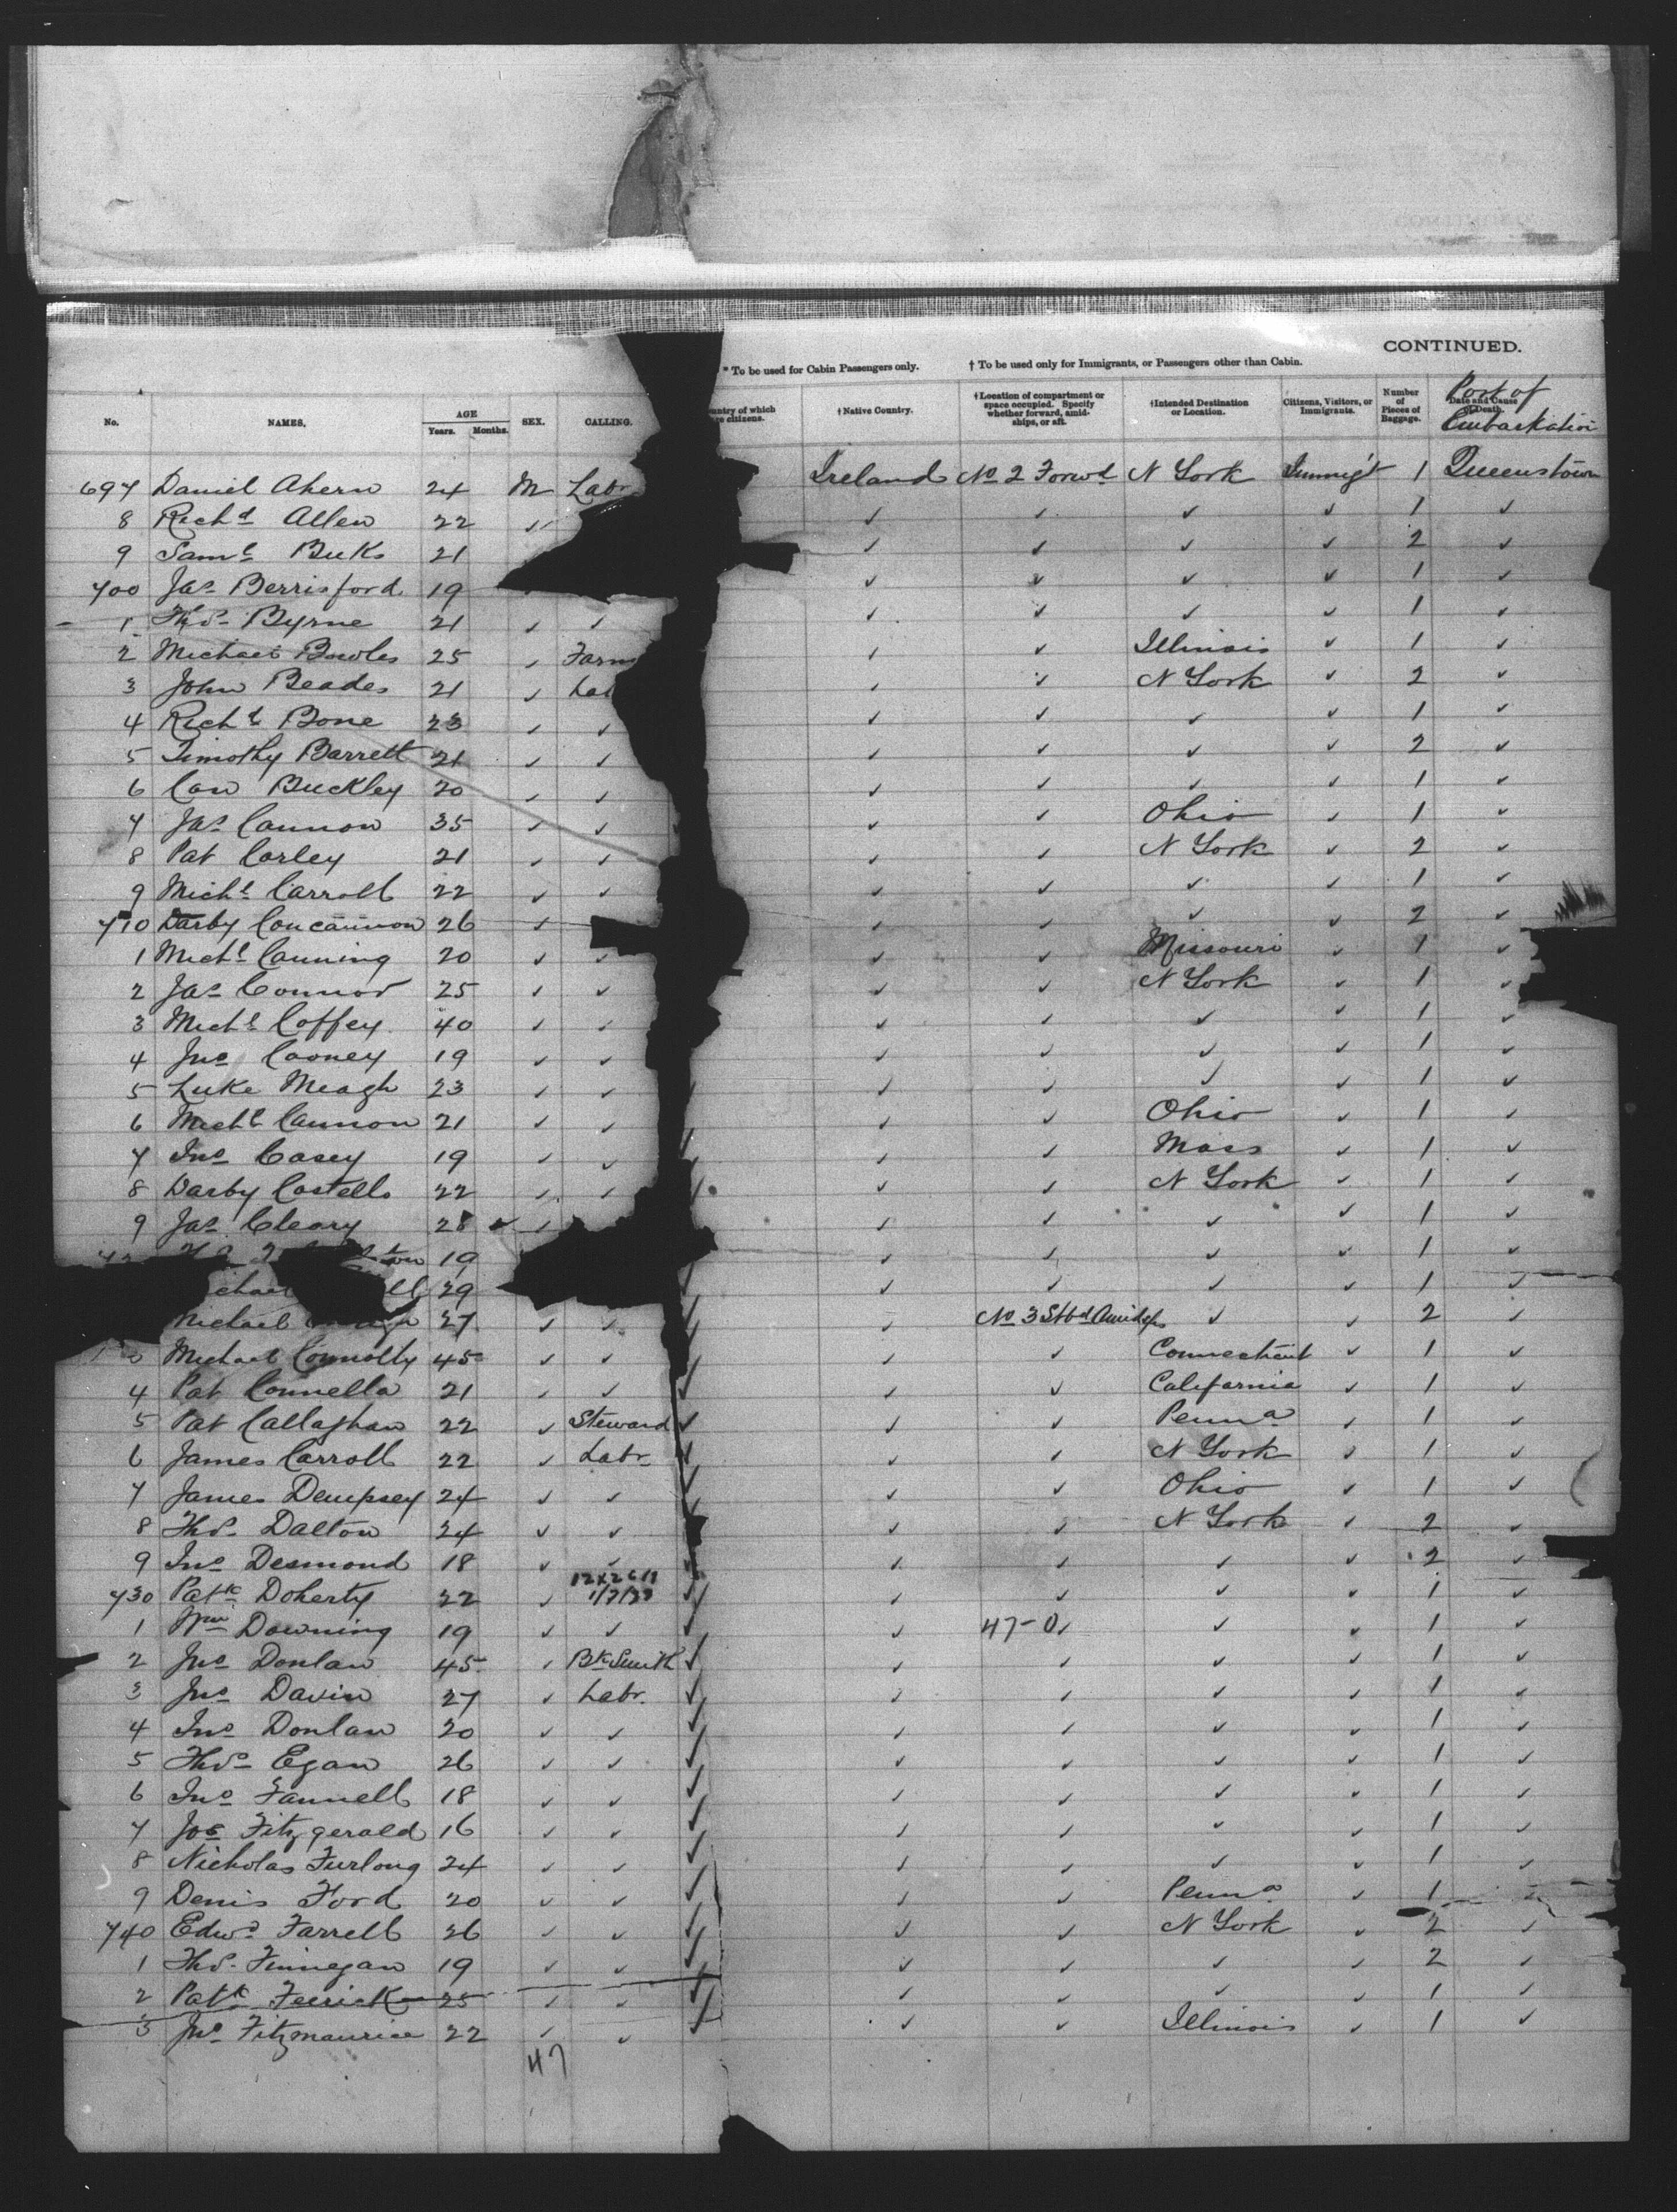 CONTINUED.
* To be used for Cabin Passengers only. † To be used only for Immigrants, or Passengers other than Cabin.
No. NAMES. AGE Years. Months. SEX. CALLING. †Native Country. †Location of compartment or space occupied. Specify whether forward, amidships, or aft. †Intended Destination or Location. Citizens, Visitors, or Immigrants. Number of Pieces of Baggage. Date and Cause of Death. Port of Embarkation
697 Daniel Ahern 24 M Labr Ireland No 2 Forwd N York Immigt 1 Queenstown
8 Richd Allen 22 ✓ ✓ ✓ ✓ ✓ 1 ✓
9 Saml Buks 21 ✓ ✓ ✓ ✓ 2 ✓
700 Jas Berrisford 19 ✓ ✓ ✓ ✓ 1 ✓
1 Thos Byrne 21 ✓ ✓ ✓ ✓ ✓ ✓ 1 ✓
2 Michael Bowles 25 ✓ Farm ✓ ✓ Illinois ✓ 1 ✓
3 John Beades 21 ✓ Lab ✓ ✓ N York ✓ 2 ✓
4 Richd Bone 23 ✓ ✓ ✓ ✓ ✓ ✓ 1 ✓
5 Timothy Barrett 21 ✓ ✓ ✓ ✓ ✓ ✓ 2 ✓
6 Con Buckley 20 ✓ ✓ ✓ ✓ ✓ ✓ 1 ✓
7 Jas Cannon 35 ✓ ✓ ✓ ✓ Ohio ✓ 1 ✓
8 Pat Corley 21 ✓ ✓ ✓ ✓ N York ✓ 2 ✓
9 Michl Carroll 22 ✓ ✓ ✓ ✓ ✓ ✓ 1 ✓
710 Darby Concannon 26 ✓ ✓ ✓ ✓ ✓ 2 ✓
1 Michl Canning 20 ✓ ✓ ✓ ✓ Missouri ✓ 1 ✓
2 Jas Connor 25 ✓ ✓ ✓ ✓ N York ✓ 1 ✓
3 Michl Coffey 40 ✓ ✓ ✓ ✓ ✓ ✓ 1 ✓
4 Jno Cooney 19 ✓ ✓ ✓ ✓ ✓ ✓ 1 ✓
5 Luke Meagh 23 ✓ ✓ ✓ ✓ ✓ ✓ 1 ✓
6 Michl Cannon 21 ✓ ✓ ✓ ✓ Ohio ✓ 1 ✓
7 Jno Casey 19 ✓ ✓ ✓ ✓ Mass ✓ 1 ✓
8 Darby Costello 22 ✓ ✓ ✓ ✓ N York ✓ 1 ✓
9 Jas Cleary 28 ✓ ✓ ✓ ✓ ✓ ✓ 1 ✓
19 ✓ ✓ ✓ ✓ 1 ✓
29 ✓ ✓ ✓ ✓ 1 ✓
Michael 27 ✓ ✓ ✓ No 3 Stbd Amidsps ✓ ✓ 2 ✓
Michael Connolly 45 ✓ ✓ ✓ ✓ Connecticut ✓ 1 ✓
4 Pat Connella 21 ✓ ✓ ✓ ✓ California ✓ 1 ✓
5 Pat Callaghan 22 ✓ Steward ✓ ✓ ✓ Penna ✓ 1 ✓
6 James Carroll 22 ✓ Labr ✓ ✓ ✓ N York ✓ 1 ✓
7 James Dempsey 24 ✓ ✓ ✓ ✓ Ohio ✓ 1 ✓
8 Thos Dalton 24 ✓ ✓ ✓ ✓ N York ✓ 2 ✓
9 Jno Desmond 18 ✓ ✓ ✓ ✓ ✓ ✓ ✓ 2 ✓
730 Patk Doherty 22 ✓ ✓ ✓ ✓ ✓ ✓ 1 ✓
1 Wm Downing 19 ✓ ✓ ✓ ✓ 47-0 ✓ ✓ ✓ 1 ✓
2 Jno Donlan 45 ✓ Bk Smith ✓ ✓ ✓ ✓ ✓ 1 ✓
3 Jno Davin 27 ✓ Labr. ✓ ✓ ✓ ✓ ✓ 1 ✓
4 Jno Donlan 20 ✓ ✓ ✓ ✓ ✓ ✓ ✓ 1 ✓
5 Thos Egan 26 ✓ ✓ ✓ ✓ ✓ ✓ ✓ 1 ✓
6 Jno Fannell 18 ✓ ✓ ✓ ✓ ✓ ✓ ✓ 1 ✓
7 Jos Fitzgerald 16 ✓ ✓ ✓ ✓ ✓ ✓ ✓ 1 ✓
8 Nicholas Furlong 24 ✓ ✓ ✓ ✓ ✓ ✓ ✓ 1 ✓
9 Denis Ford 20 ✓ ✓ ✓ ✓ ✓ Penna ✓ 1 ✓
740 Edwd Farrell 26 ✓ ✓ ✓ ✓ ✓ N York ✓ 2 ✓
1 Thos Finnegan 19 ✓ ✓ ✓ ✓ ✓ ✓ ✓ 2 ✓
2 Patk Feerick 25 ✓ ✓ ✓ ✓ ✓ ✓ ✓ 1 ✓
3 Jno Fitzmaurice 22 ✓ ✓ ✓ ✓ ✓ Illinois ✓ 1 ✓
47